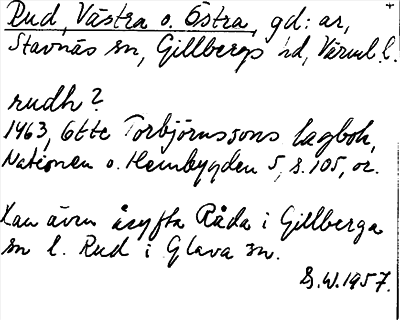 Rud, Västra o. Östra, gd: ar,
Stavnäs sn, Gillbergs hd, Värml. l.
rudh?
1463, Gtte Torbjörnssons lagbok,
Nationen o. Hembygden 5, s. 105, or.
Kan även åsyfta Råda i Gillberga
sn l. Rud i Glava sn.
S.W. 1957.